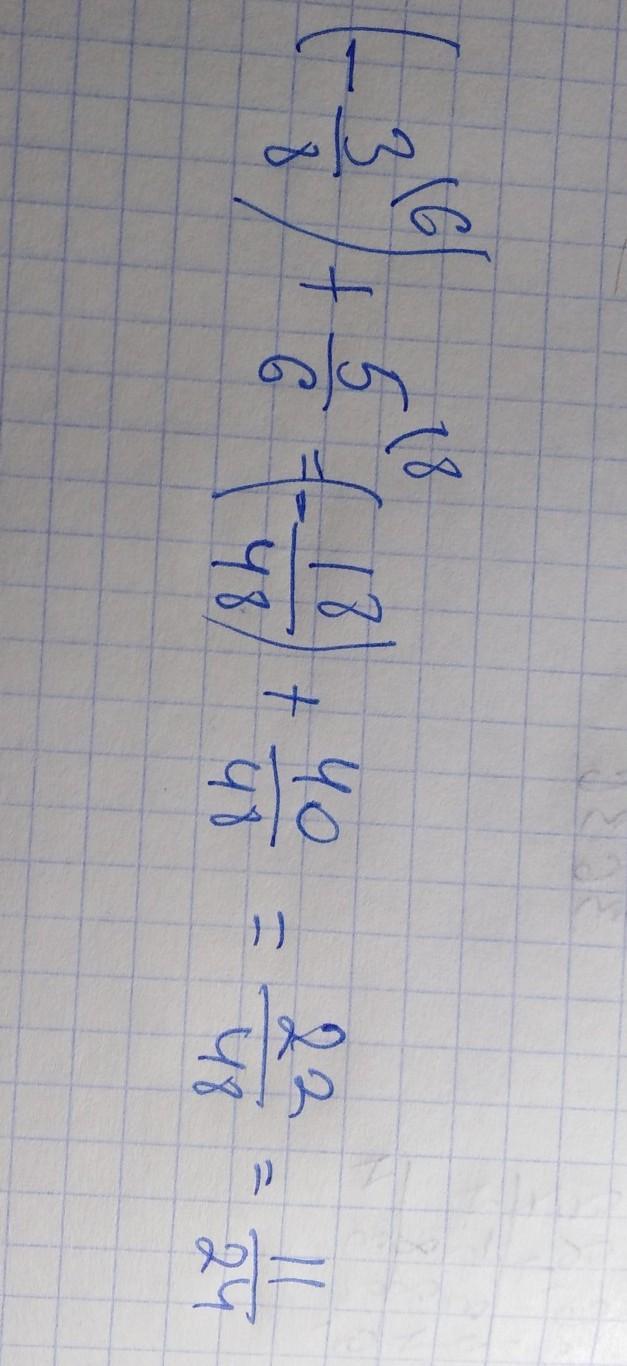 (-3/8 \6) + 5/6 \8 = (-18/48) + 40/48 = 22/48 = 11/24